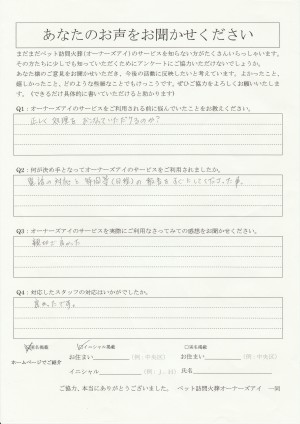 あなたのお声をお聞かせください
まだまだペット訪問火葬(オーナーズアイ)のサービスを知らない方がたくさんいらっしゃいます。
その方たちに少しでも知っていただくためにアンケートにご協力いただけないでしょうか。
あなた様のご意見をお聞かせいただき、今後の活動に反映したいと考えています。よかったこと、
嬉しかったこと、どのような些細なことでもけっこうです。ぜひご協力をよろしくお願いいたしま
す。(できるだけ具体的に書いていただけると助かります)
Q1:オーナーズアイのサービスをご利用される前に悩んでいたことをお教えください。
正しく処理をおこなっていただけるのか?
Q2:何が決め手となってオーナーズアイのサービスをご利用されましたか。
電話の対応と
Q3:オーナーズアイのサービスを実際にご利用なさってみての感想をお聞かせください。
親切で良かった
Q4:対応したスタッフの対応はいかがでしたか。
良かったです。
イニシャル掲載
□氏名掲載
ホームページでご紹介
お住まい (例:中央区)
お住まい (例:中央区)
イニシャル
氏名
ご協力、本当にありがとうございました。 ペット訪問火葬オーナーズアイ 一同